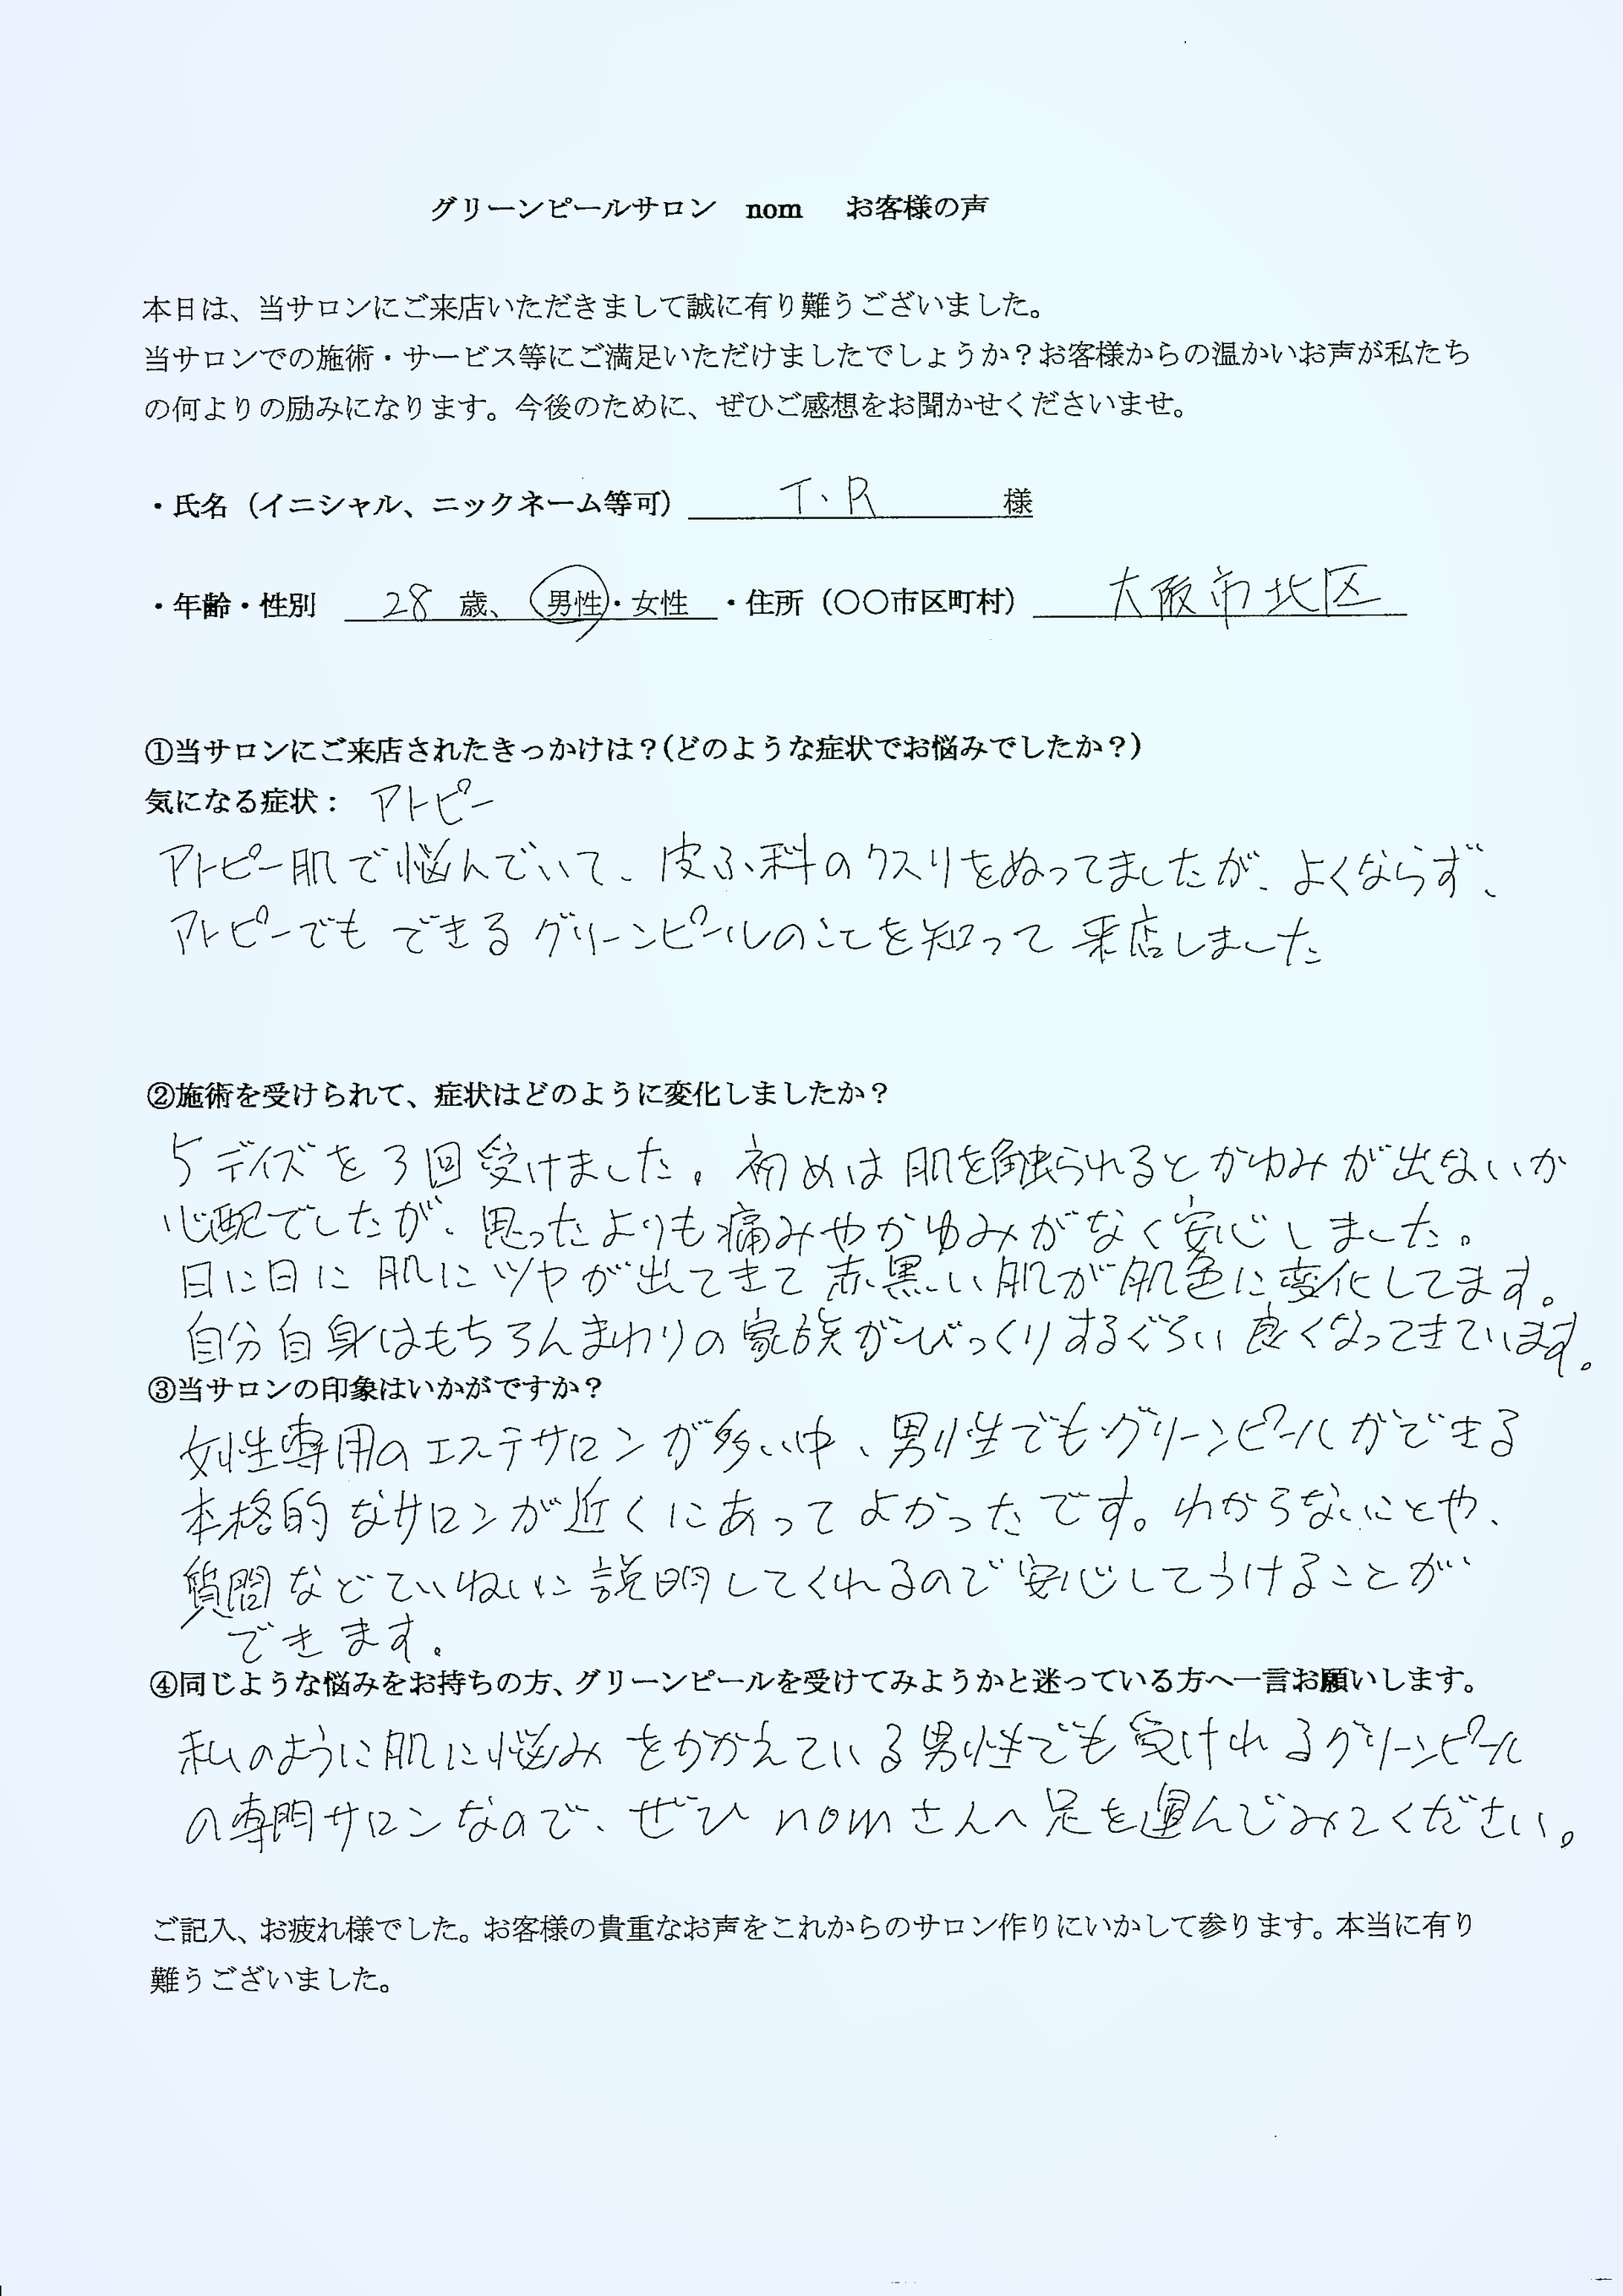 グリーンピールサロン　nom　お客様の声
本日は、当サロンにご来店いただきまして誠に有り難うございました。
当サロンでの施術・サービス等にご満足いただけましたでしょうか？お客様からの温かいお声が私たち
の何よりの励みになります。今後のために、ぜひご感想をお聞かせくださいませ。
・氏名（イニシャル、ニックネーム等可） T・R 様
・年齢・性別 28 歳、 男性・女性 ・住所（〇〇市区町村） 大阪市北区
①当サロンにご来店されたきっかけは？(どのような症状でお悩みでしたか？)
気になる症状： アトピー
アトピー肌で悩んでいて、皮ふ科のクスリをぬってましたが、よくならず、
アトピーでもできるグリーンピールのことを知って来店しました
②施術を受けられて、症状はどのように変化しましたか？
5デイズを3回受けました。初めは肌を触られるとかゆみが出ないか
心配でしたが、思ったよりも痛みやかゆみがなく安心しました。
日に日に肌にツヤが出てきて赤黒い肌が肌色に変化してます。
自分自身はもちろんまわりの家族がびっくりするぐらい良くなってきています。
③当サロンの印象はいかがですか？
女性専用のエステサロンが多い中、男性でもグリーンピールができる
本格的なサロンが近くにあってよかったです。わからないことや、
質問などていねいに説明してくれるので安心してうけることが
できます。
④同じような悩みをお持ちの方、グリーンピールを受けてみようかと迷っている方へ一言お願いします。
私のように肌に悩みをかかえている男性でも受けれるグリーンピール
の専門サロンなので、ぜひnomさんへ足を運んでみてください。
ご記入、お疲れ様でした。お客様の貴重なお声をこれからのサロン作りにいかして参ります。本当に有り
難うございました。